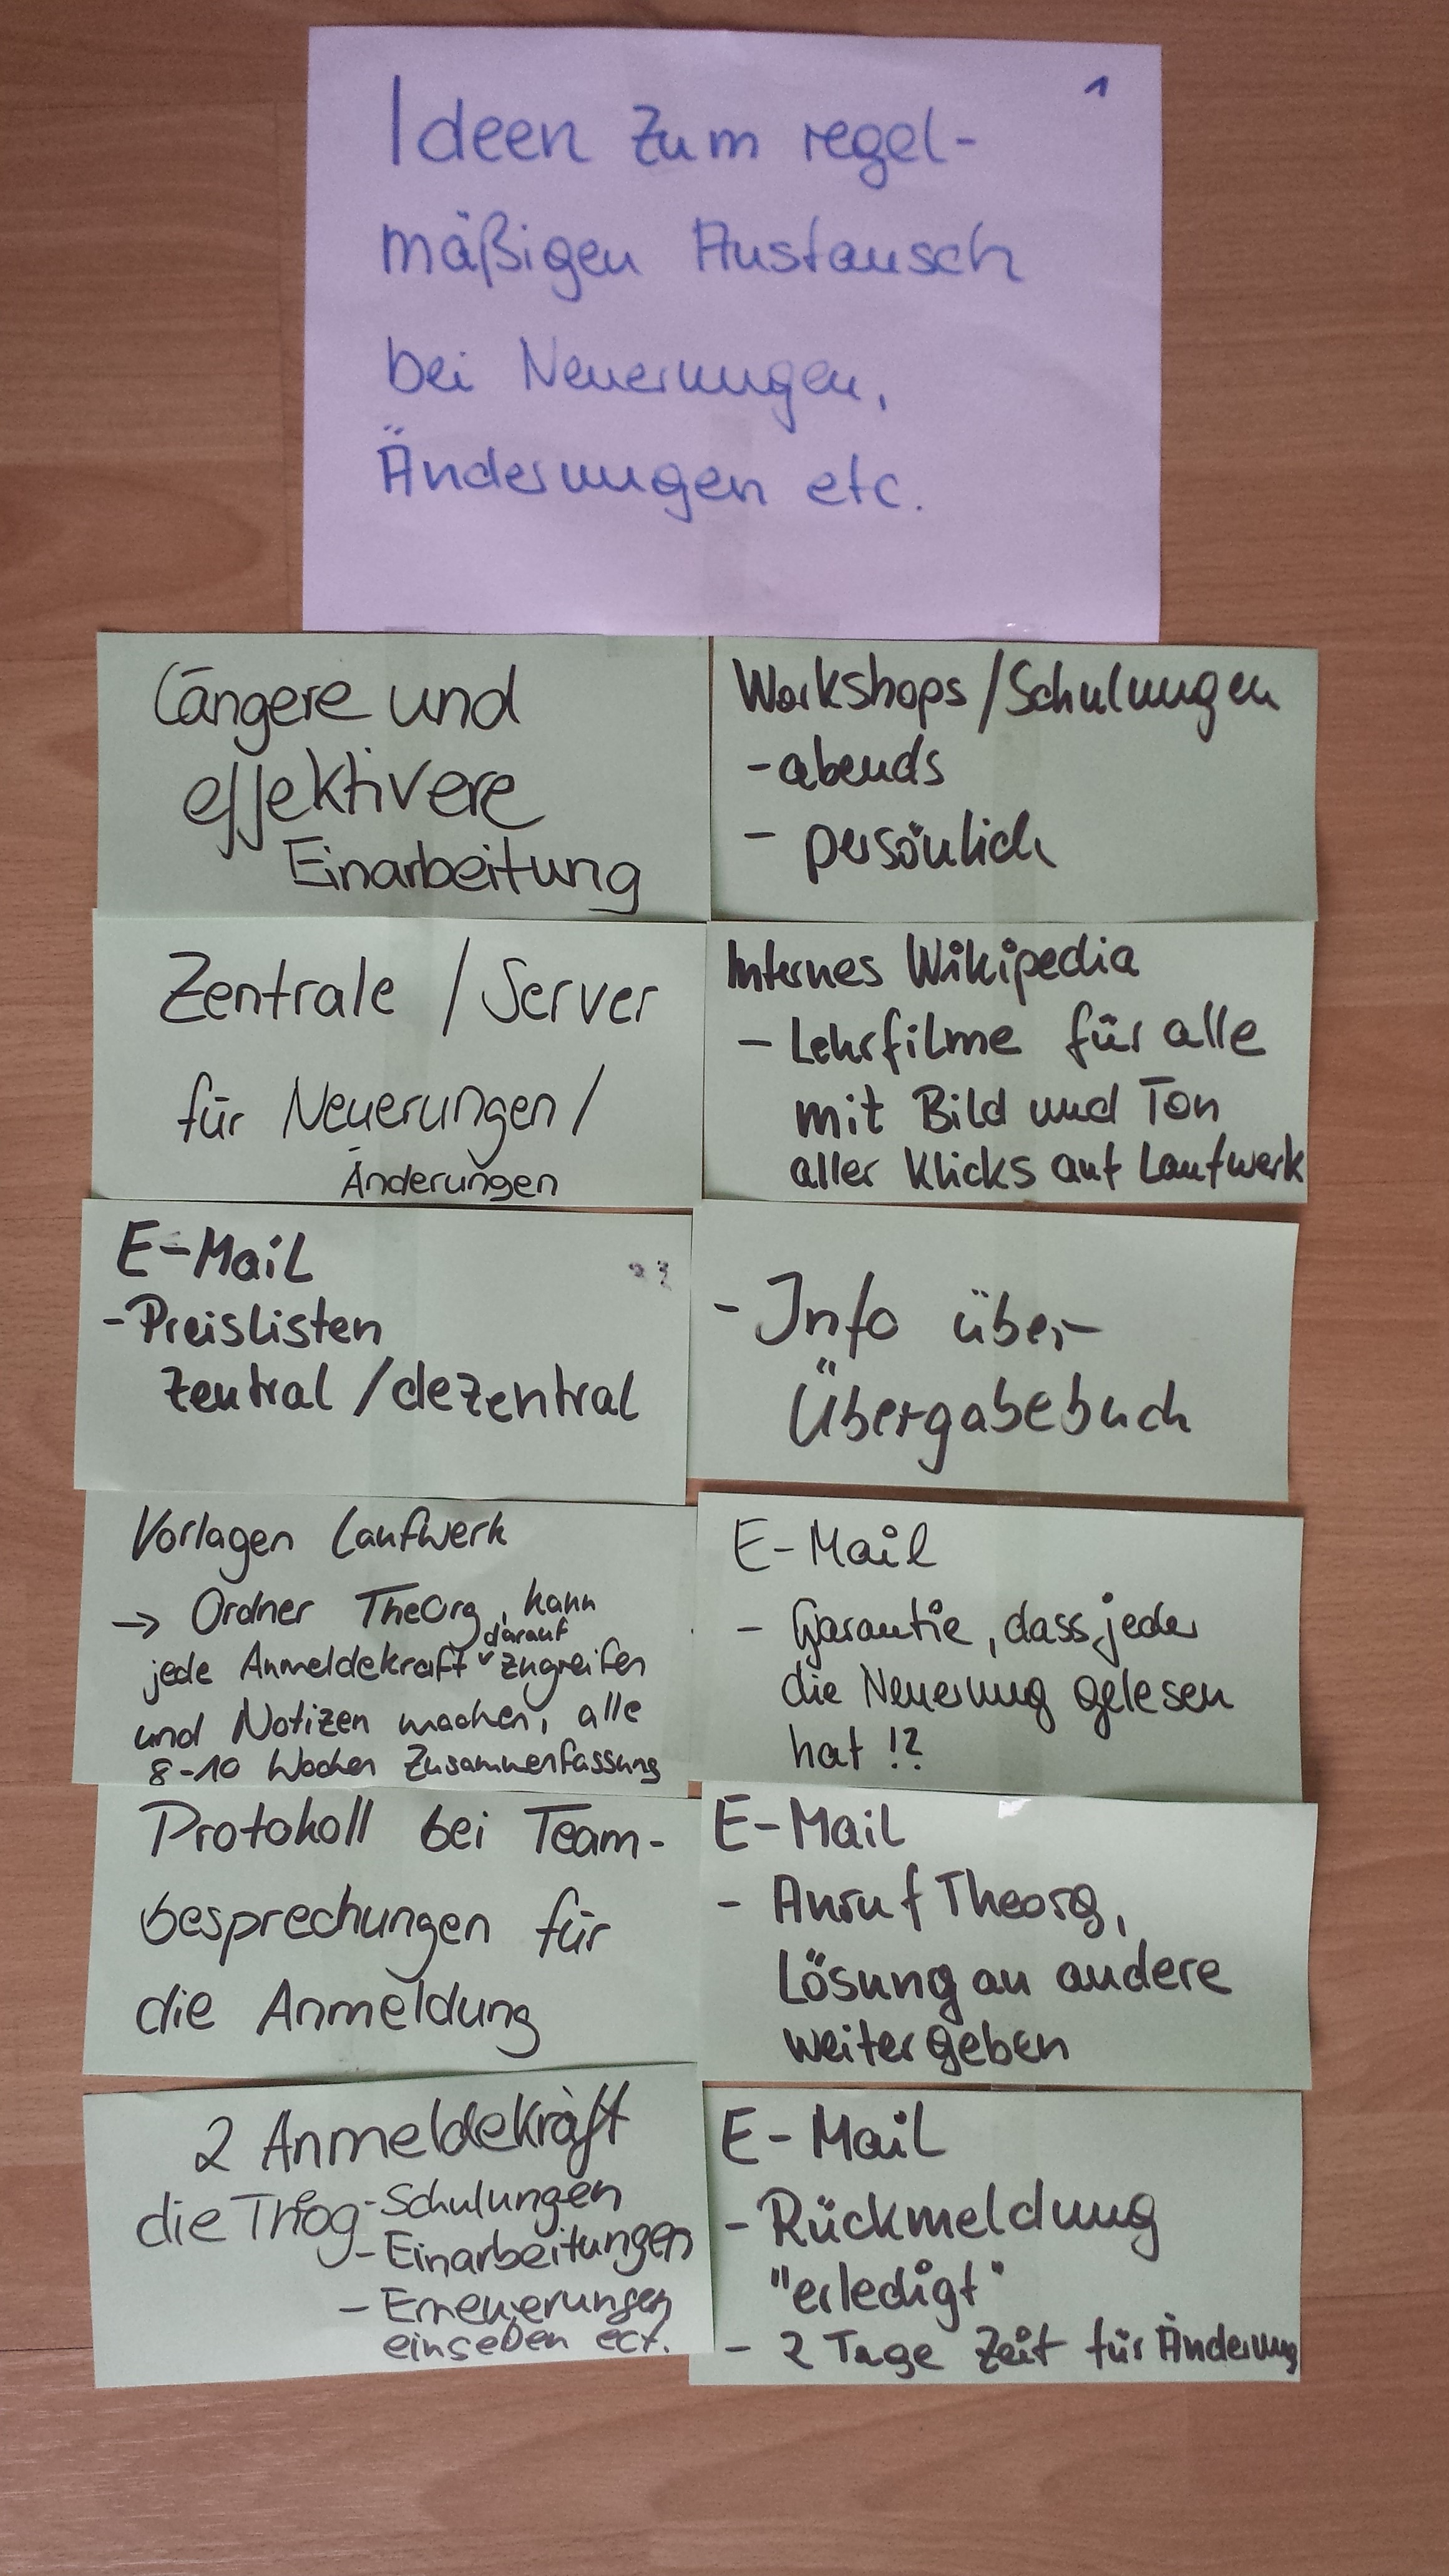 1
Ideen zum regel-
mäßigen Austausch
bei Neuerungen,
Änderungen etc.
Längere und
effektivere
Einarbeitung
Workshops/Schulungen
- abends
- persönlich
Zentrale / Server
für Neuerungen/
Änderungen
Internes Wikipedia
- Lehrfilme für alle
mit Bild und Ton
aller Klicks auf Laufwerk
E-Mail
- Preislisten
zentral/dezentral
- Info über
Übergabebuch
Vorlagen Laufwerk
→ Ordner TheOrg, kann
darauf
jede Anmeldekraft zugreifen
und Notizen machen, alle
8-10 Wochen Zusammenfassung
E-Mail
- Garantie, dass jeder
die Neuerung gelesen
hat !?
Protokoll bei Team-
besprechungen für
die Anmeldung
E-Mail
- Anruf Theorg,
Lösung an andere
weitergeben
2 Anmeldekräft
die - Schulungen
- Einarbeitungen
- Erneuerungen
eingeben ect.
E-Mail
- Rückmeldung
"erledigt"
- 2 Tage Zeit für Änderung